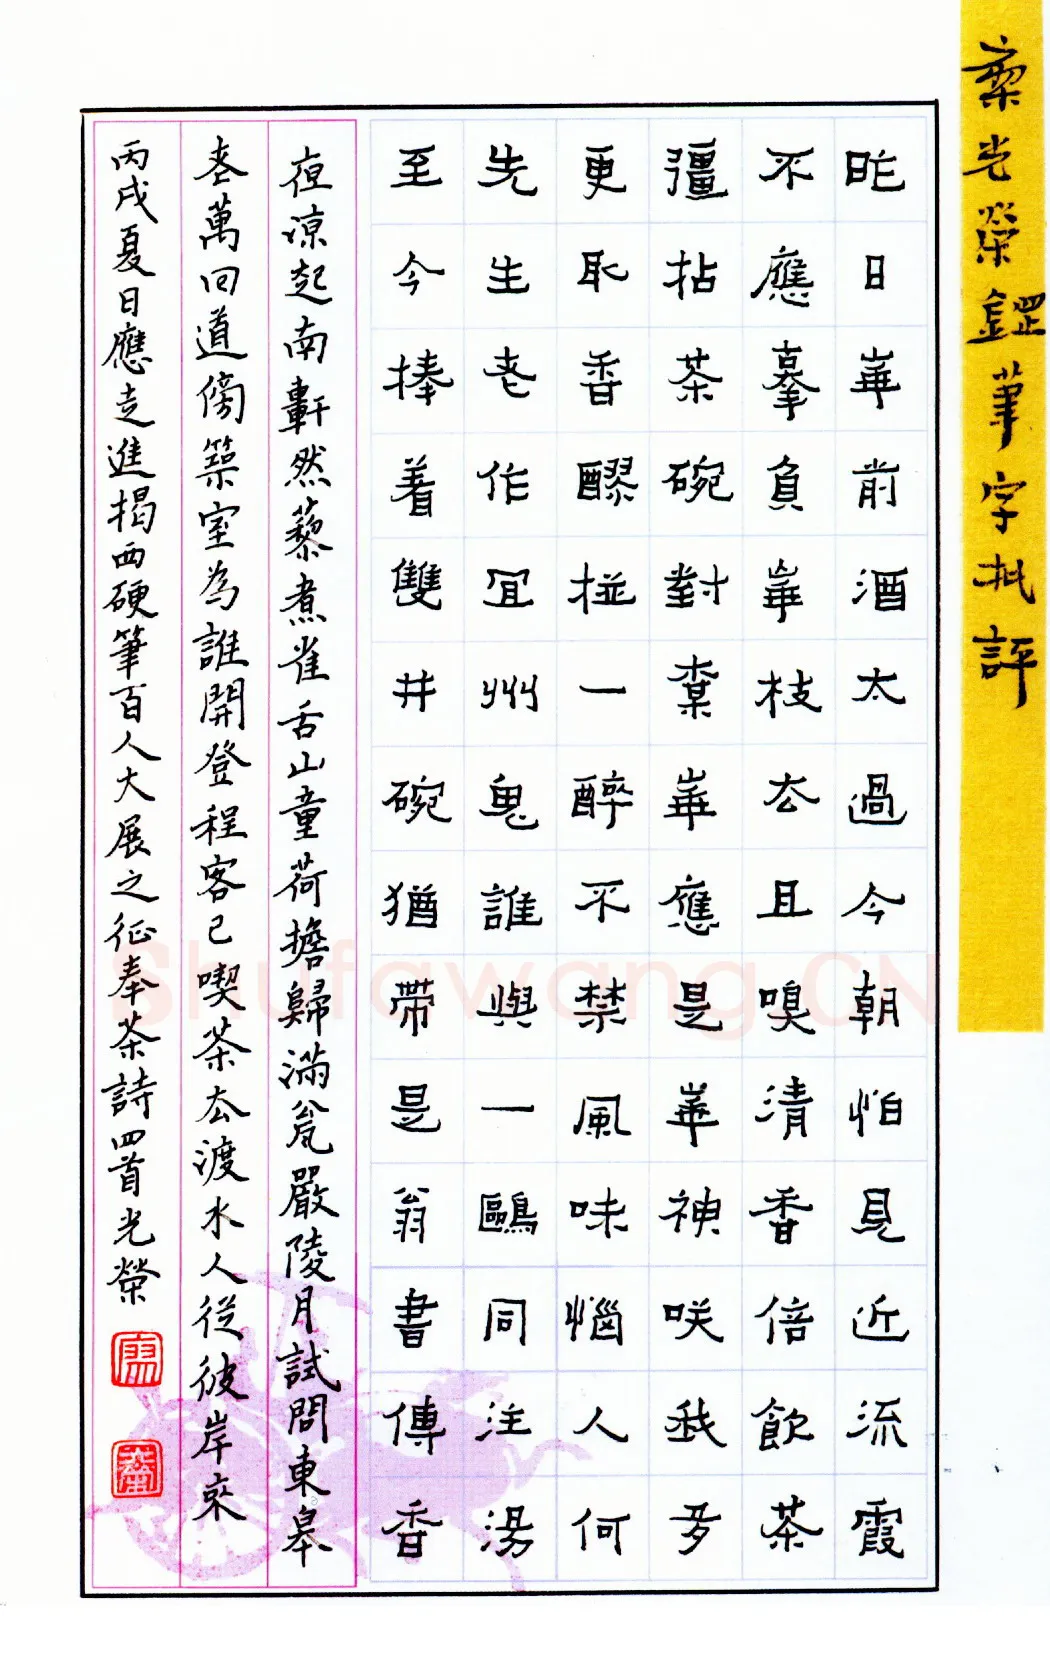 廖光榮鋼筆字批評
昨日華前酒太過今朝怕見近流霞
不應辜負華枝去且嗅清香倍飲茶
彊拈茶碗對華應是華神咲我多
更耻香醪一醉不禁風味惱人何
先生老作宜州鬼誰與一鷗同注湯
至今捧着雙井碗猶帶是翁書傳香
夜涼起南軒然藜煮雀舌山童荷擔歸滿瓮嚴陵月試問東皋
老萬回道傍築室為誰開登程客已喫茶去渡水人從彼岸來
丙戌夏日應走進揭西硬筆百人大展之征奉茶詩四首光榮
Shufawang.CN